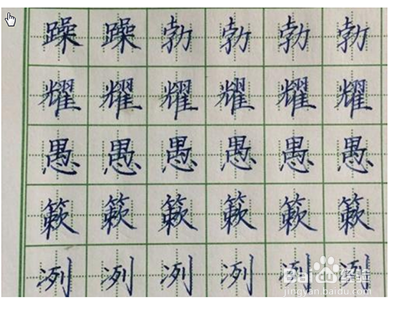 躁躁勃勃勃勃
耀耀耀耀耀耀
愚愚愚愚愚愚
簌簌簌簌簌簌
冽冽冽冽冽冽
Bai 经验
jingyan.baidu.com